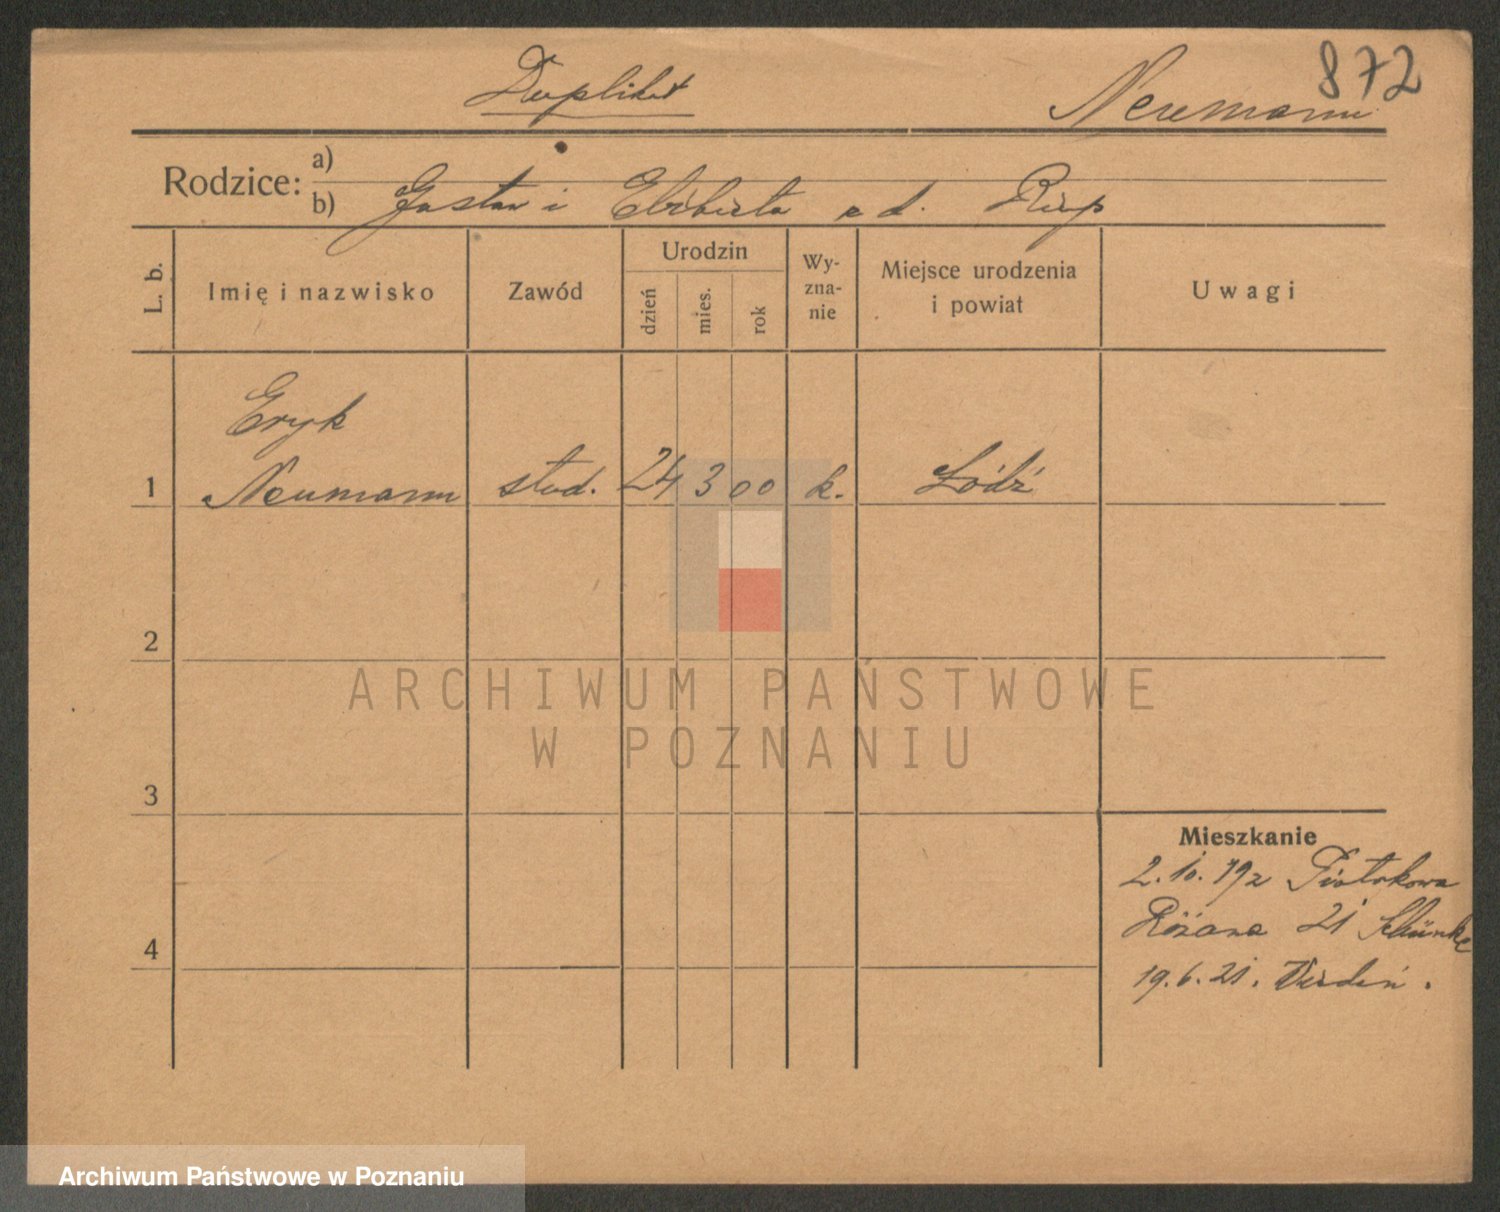 872
Duplikat
Neumann
Rodzice:
a)
b) Gustaw i Elżbieta z d.
L. b.
Imię i nazwisko
Zawód
Urodzin
dzień
mies.
rok
Wy-
zna-
nie
Miejsce urodzenia
i powiat
Uwagi
Eryk
1 Neumann stud. 24 3 00 k. Łódź
2
ARCHIWUM PAŃSTWOWE
W POZNANIU
3
Mieszkanie
2.10.192
Różana 21
4
19.6.21.
Archiwum Państwowe w Poznaniu